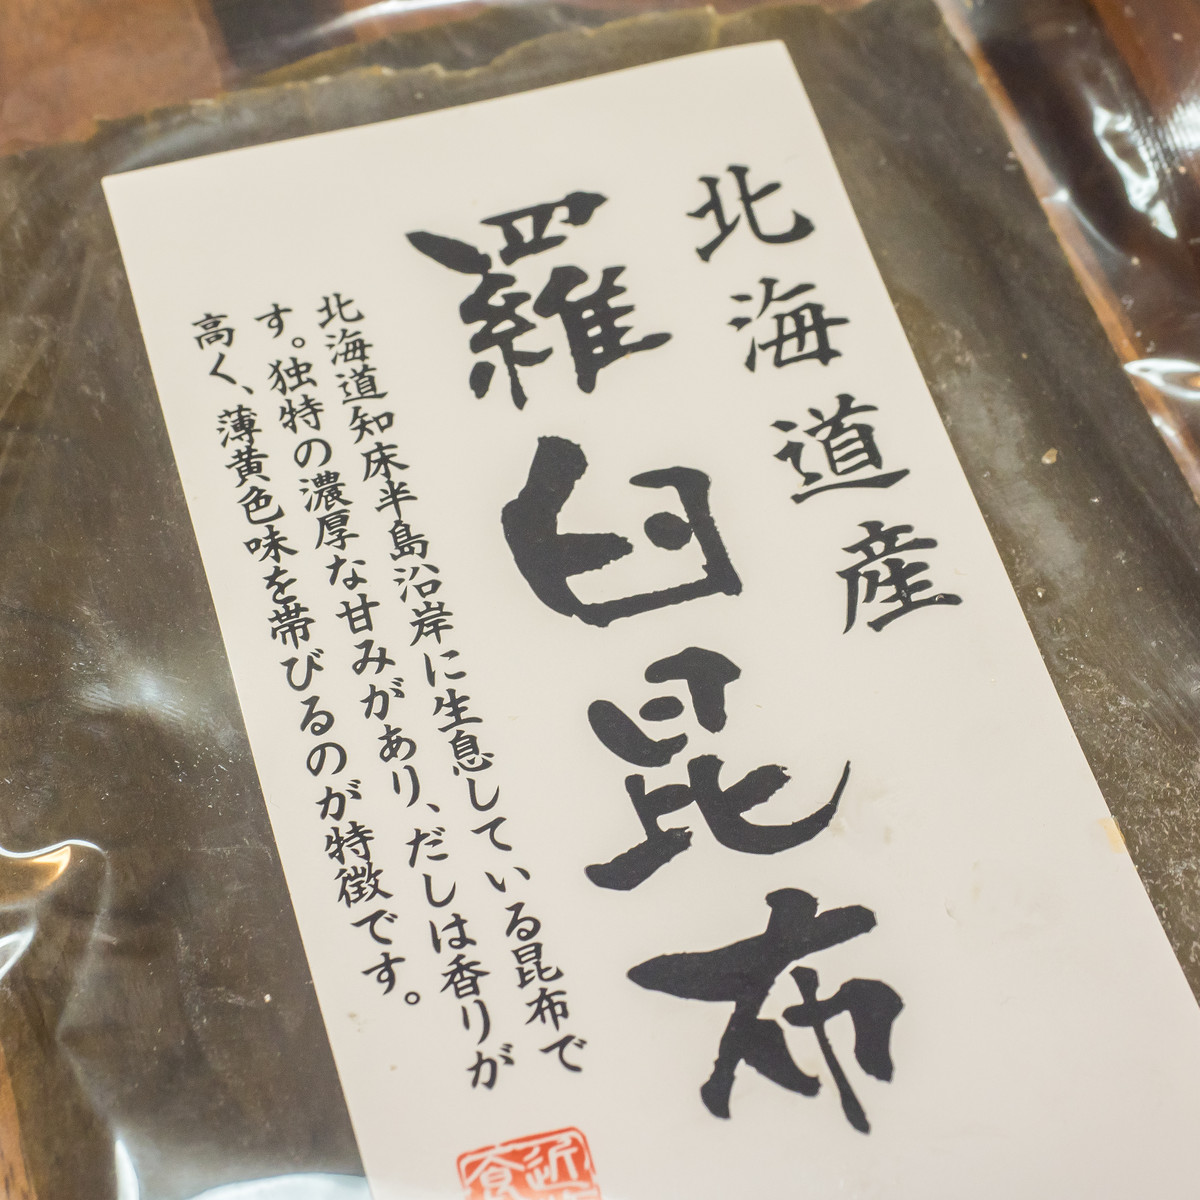 北海道産
羅臼昆布
北海道知床半島沿岸に生息している昆布で
す。独特の濃厚な甘みがあり、だしは香りが
高く、薄黄色味を帯びるのが特徴です。
近